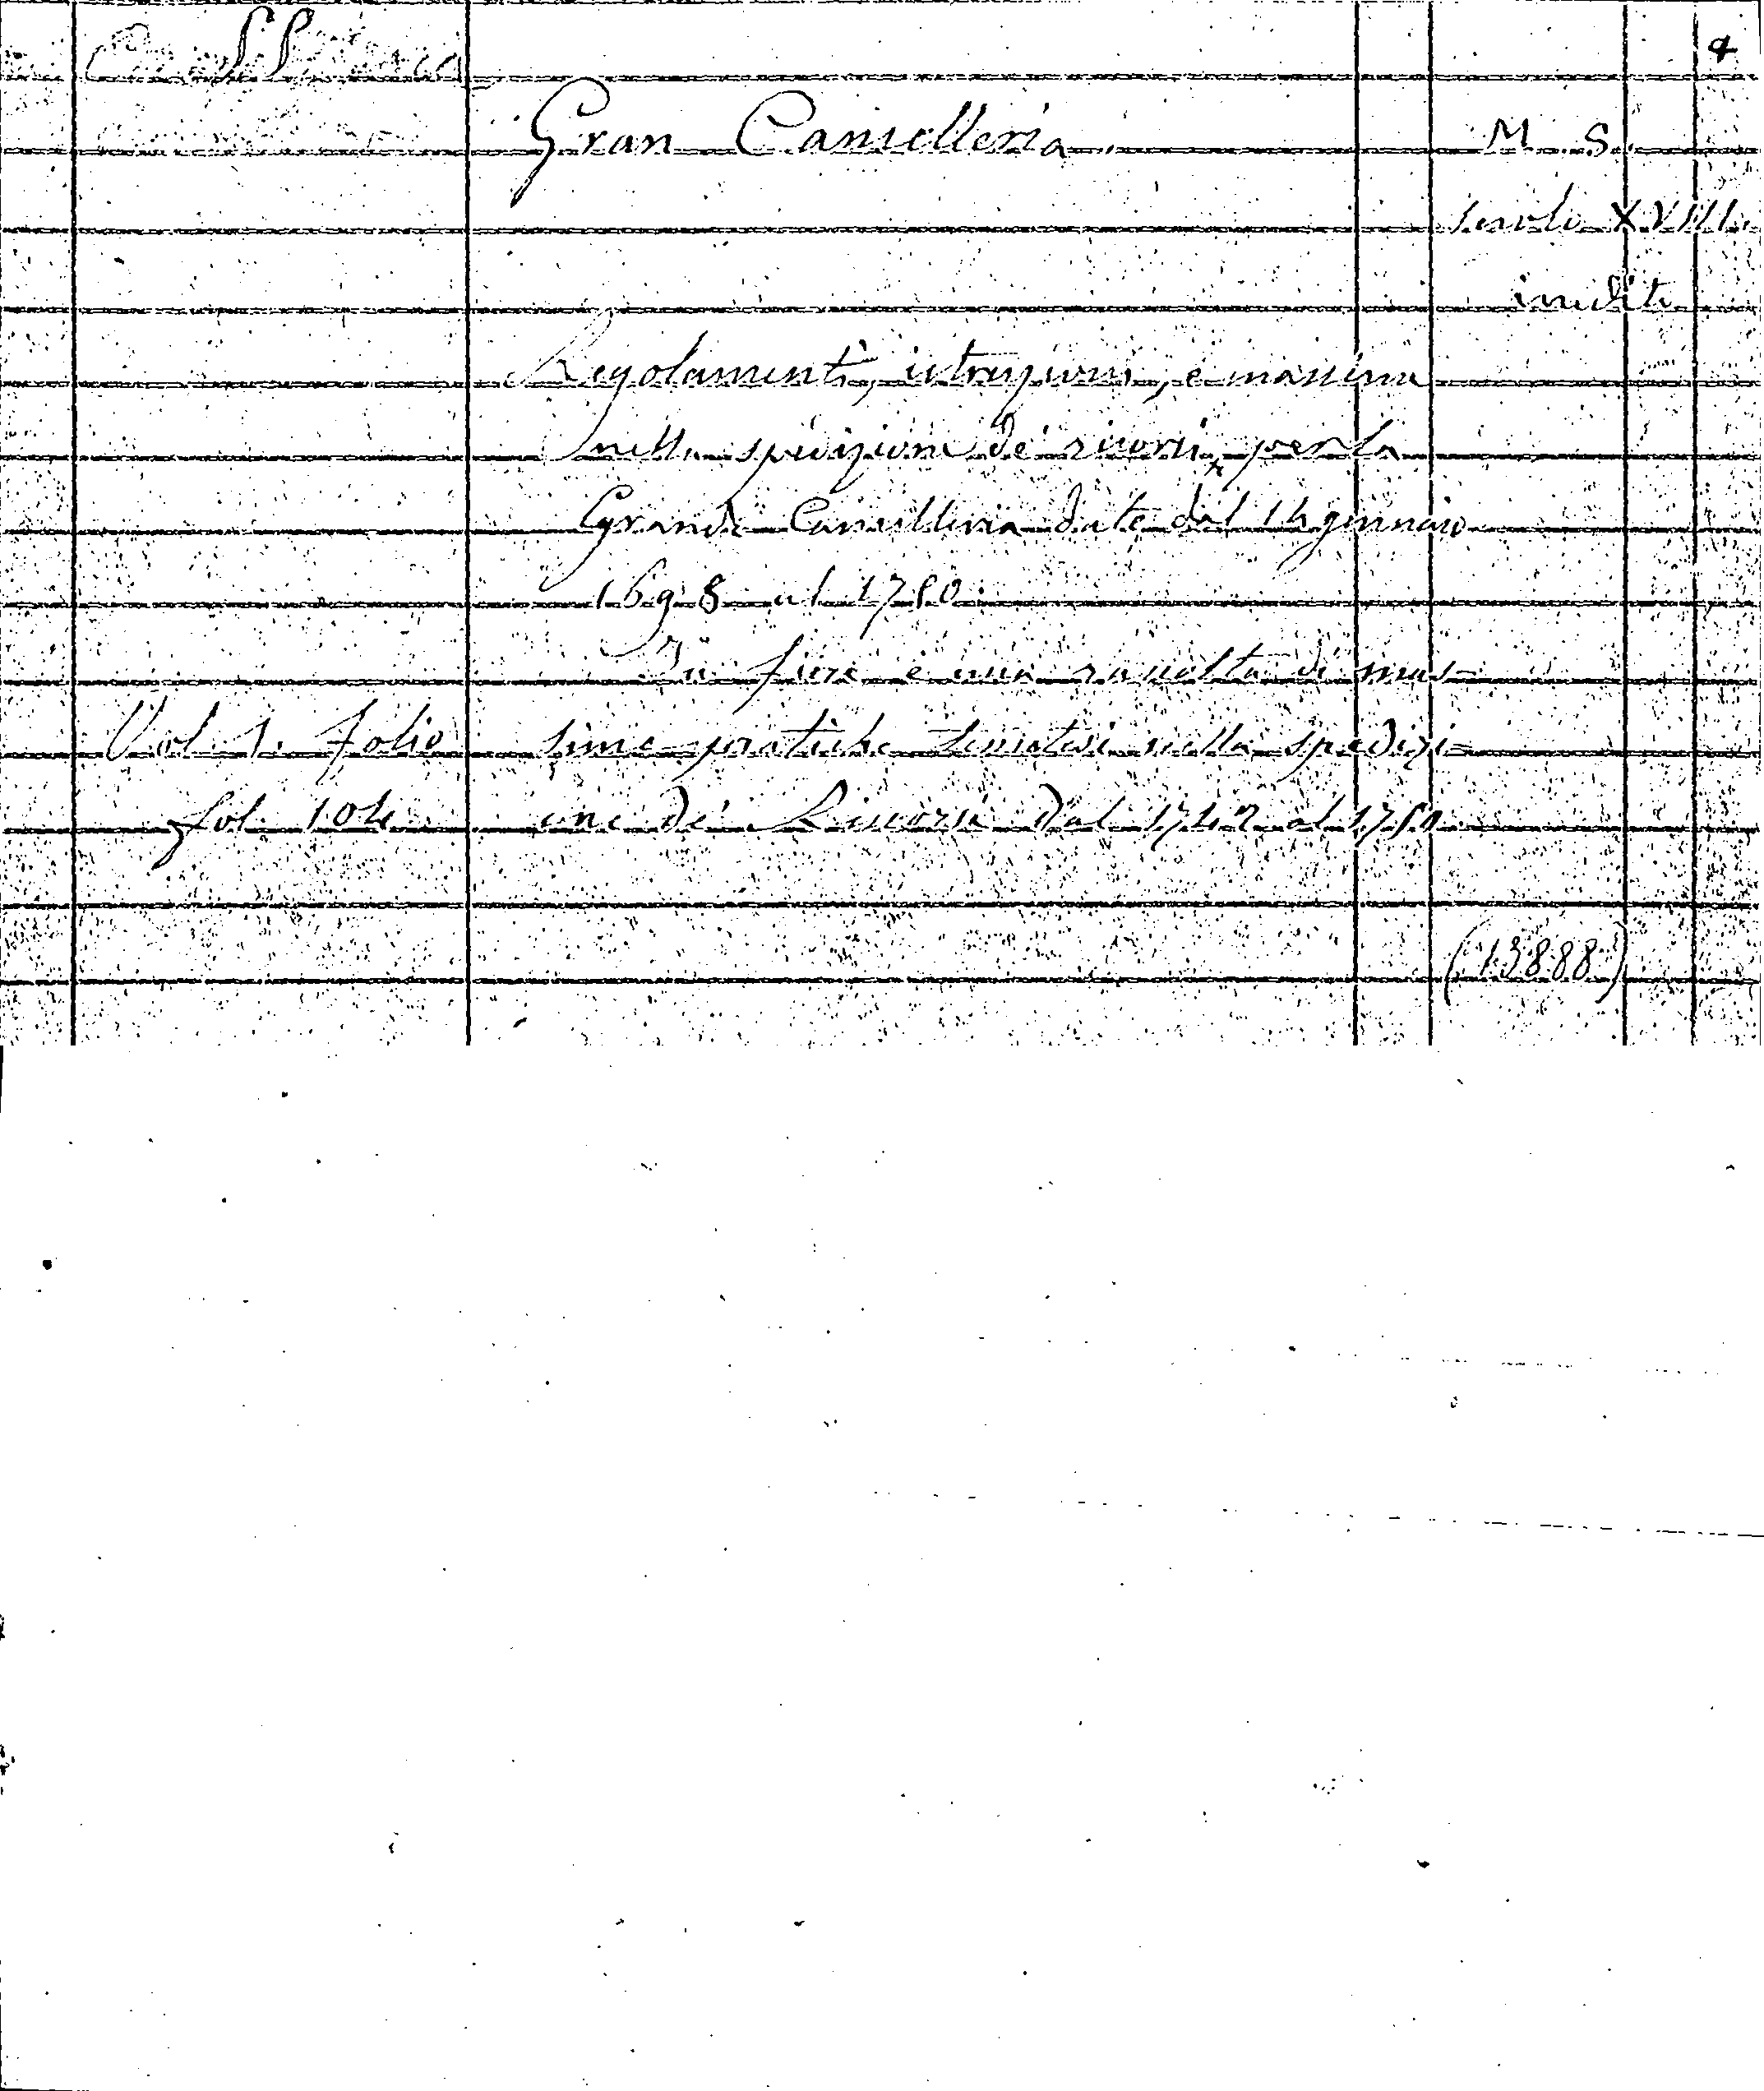 4
Gran Cancelleria. M. S.
secolo XVIII
inedito
Regolamenti, istruzioni, e massime
nella spedizione de' ricorsi per la
Grande Cancelleria date dal 14 gennaio
1698 al 1780.
In fine è una raccolta di mas-
Vol. 1. Folio sime pratiche tenutesi nella spedizi-
fol. 104 one de' Ricorsi dal 1742 al 1780
(13888)